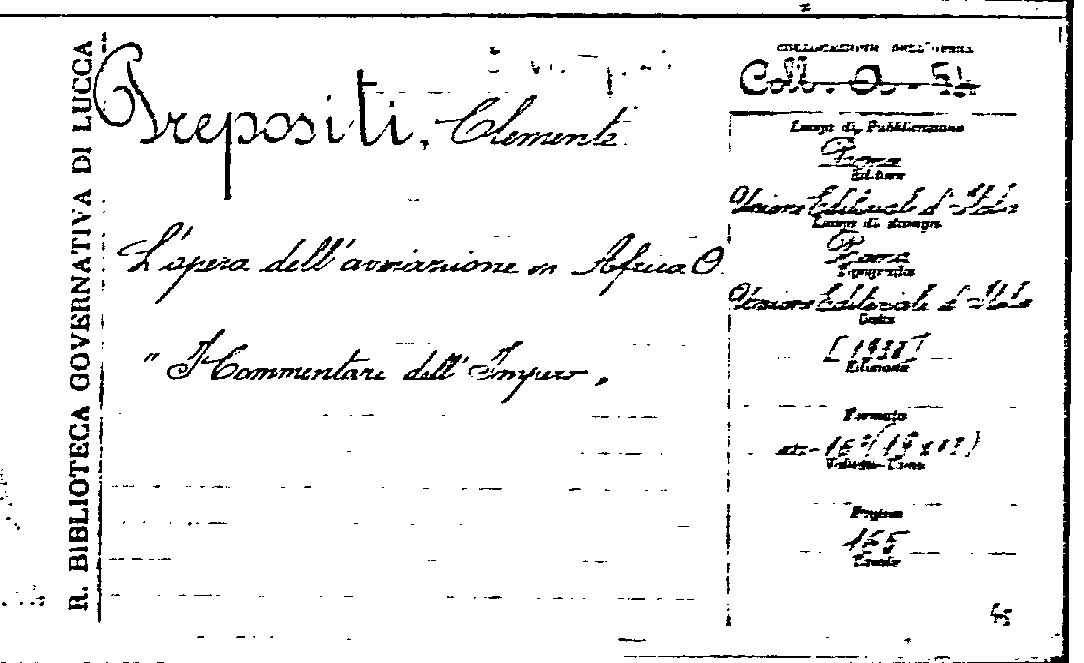 R. BIBLIOTECA GOVERNATIVA DI LUCCA
Prepositi, Clemente
L'opera dell'aviazione in Africa O.
"I Commentari dell'Impero"
COLLOCAZIONE DELL'OPERA
Coll. O. - 54
Luogo di Pubblicazione
Roma
Editore
Unione Editoriale d'Italia
Luogo di stampa
Roma
Tipografia
Unione Editoriale d'Italia
Data
[1938]
Edizione
Formato
in-16°
Volume - Tomo
Pagine
155
Tavole